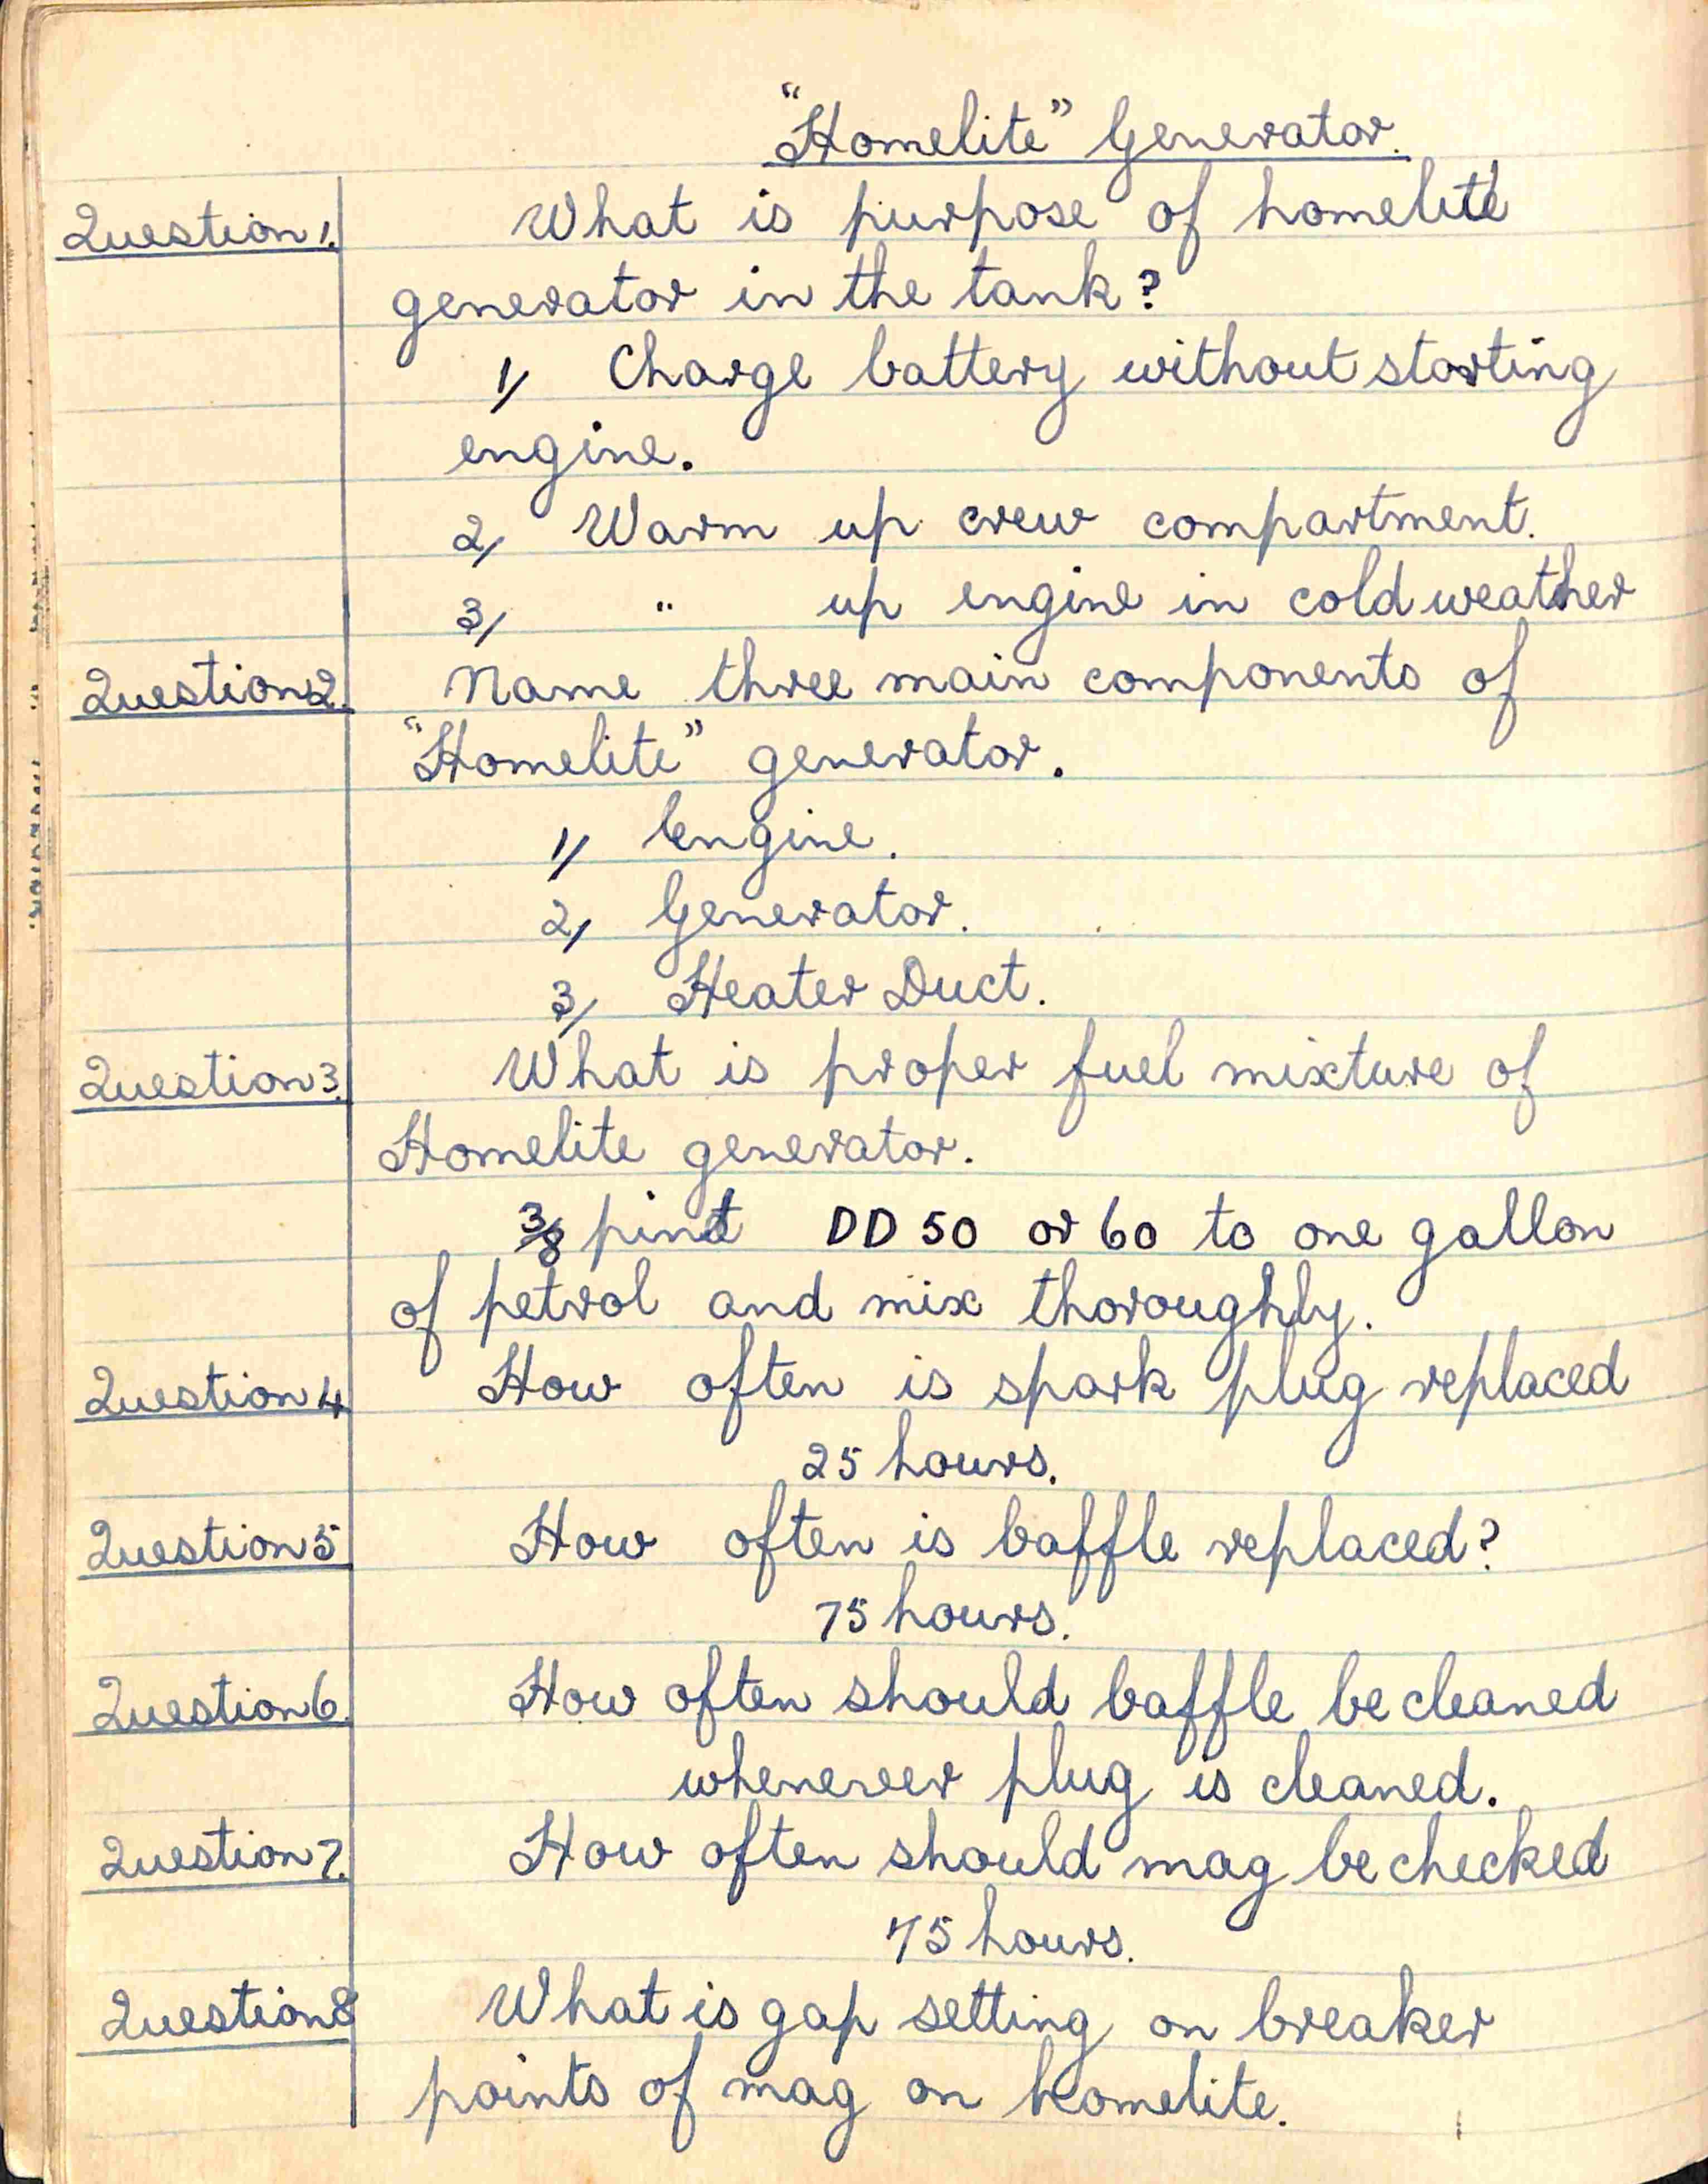 "Homelite" Generator.
Question 1. What is purpose of homelite
generator in the tank?
1/ Charge battery without starting
engine.
2/ Warm up crew compartment.
3/ " up engine in cold weather
Question 2. Name three main components of
"Homelite" generator.
1/ Engine.
2/ Generator.
3/ Heater Duct.
Question 3. What is proper fuel mixture of
Homelite generator.
3/8 pint DD 50 or 60 to one gallon
of petrol and mix thoroughly.
Question 4 How often is spark plug replaced
25 hours.
Question 5 How often is baffle replaced?
75 hours.
Question 6. How often should baffle be cleaned
whenever plug is cleaned.
Question 7. How often should mag be checked
75 hours.
Question 8 What is gap setting on breaker
points of mag on homelite.